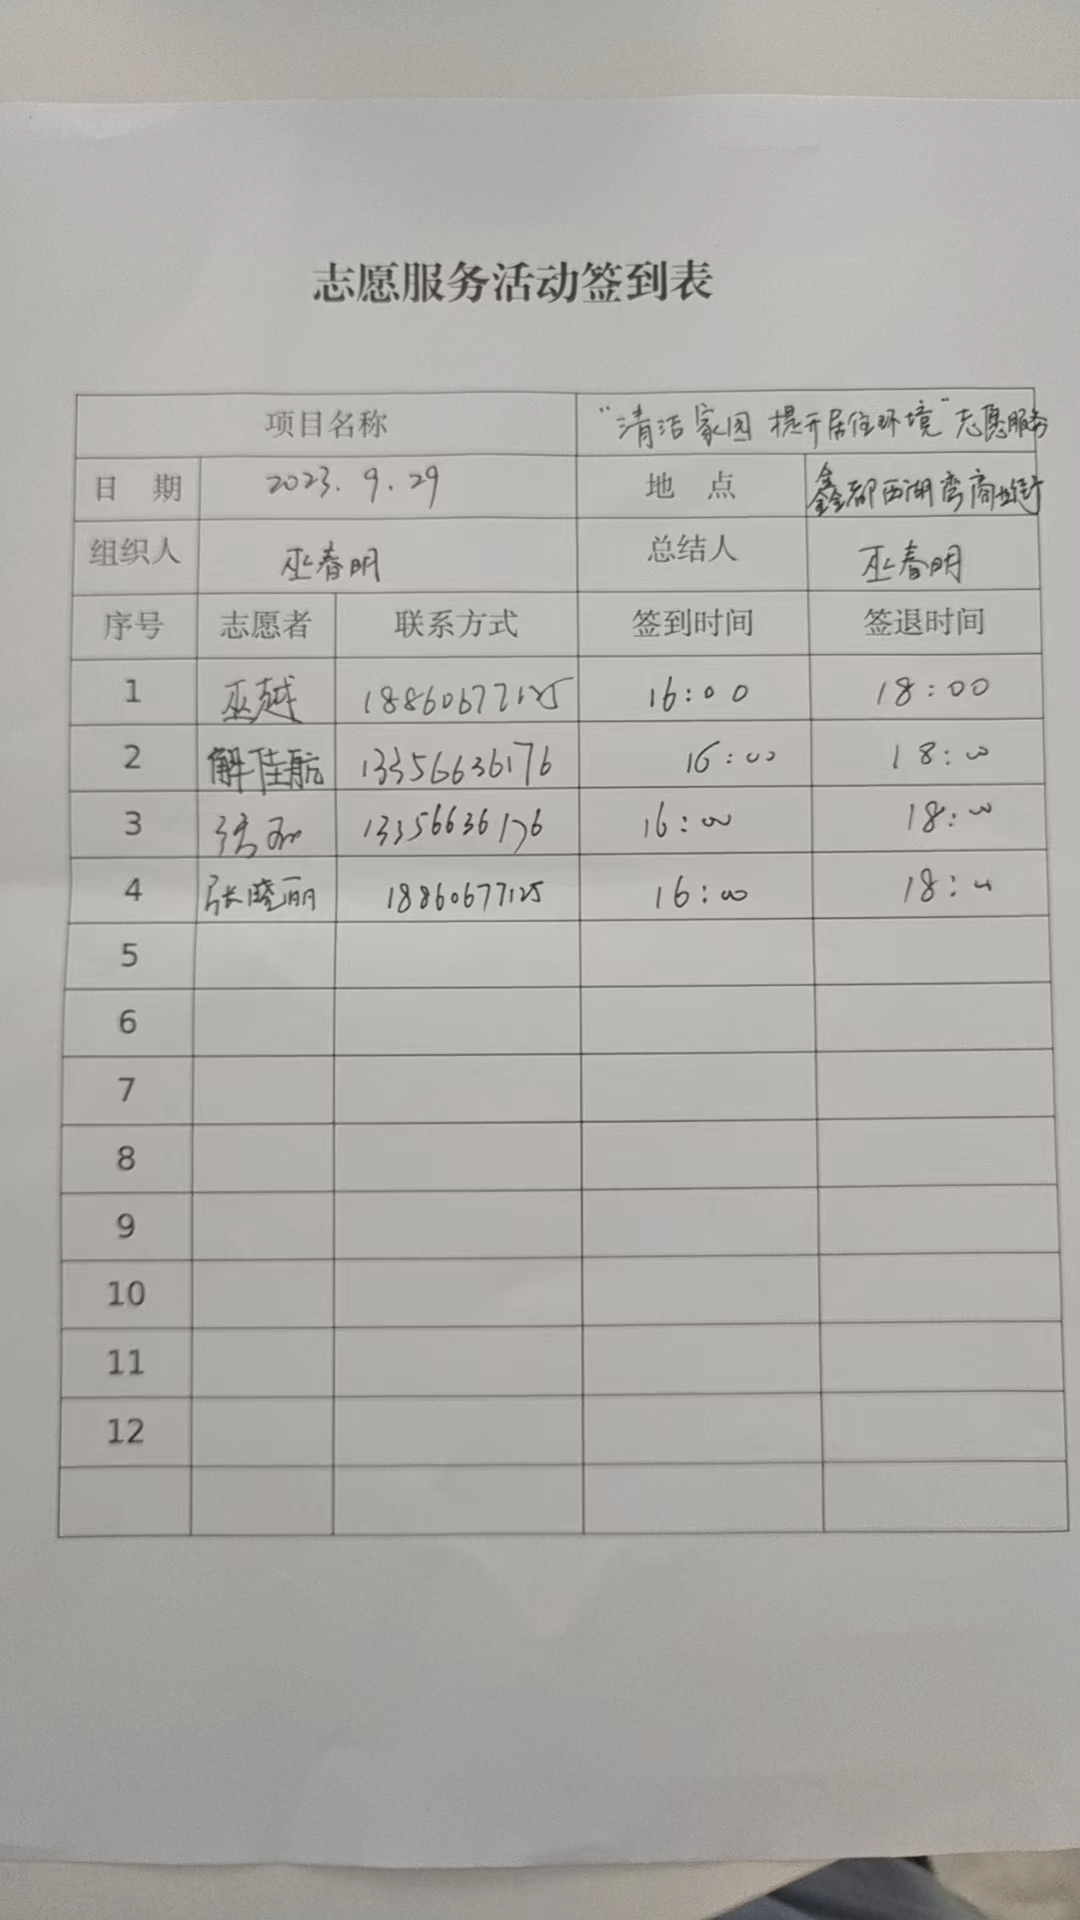 志愿服务活动签到表
项目名称 “清洁家园 提升居住环境”志愿服务
日 期 2023.9.29 地 点 鑫都西湖湾商业街
组织人 巫春明 总结人 巫春明
序号 志愿者 联系方式 签到时间 签退时间
1 巫越 18860677125 16:00 18:00
2 解佳航 13356636176 16:00 18:00
3 13356636176 16:00 18:00
4 张晓丽 18860677125 16:00 18:00
5
6
7
8
9
10
11
12